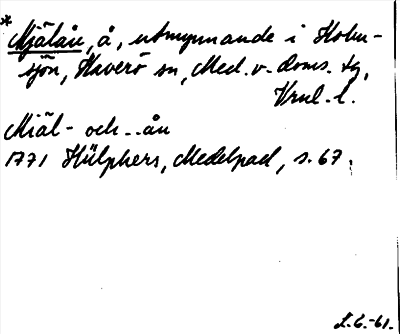 *Mjälån, å, utmynnande i Holm-
sjön, Haverö sn, Med. v. doms. tg,
Vrnl. l.
Miäl- och -ån
1771 Hülphers, Medelpad, s. 67.
L.G.-61.